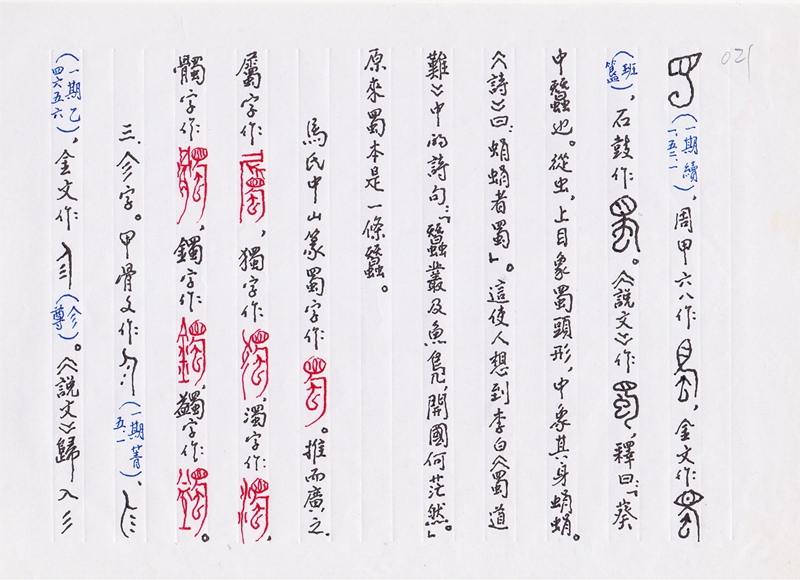 021
(一期續一.五二.一)，周甲六八作，金文作
(班簋)，石鼓作。《說文》作，釋曰：「葵
中蠶也。從虫，上目象蜀頭形，中象其身蜎蜎。
《詩》曰：蜎蜎者蜀」。這使人想到李白《蜀道
難》中的詩句：「蠶叢及魚鳧，開國何茫然。」
原來蜀本是一條蠶。
馬氏中山篆蜀字作。推而廣之，
屬字作，獨字作，濁字作，
髑字作，鐲字作，蠲字作。
三、㐱字。甲骨文作(一期菁五.一)、
(一期乙四六五六)，金文作(㐱尊)。《說文》歸入彡